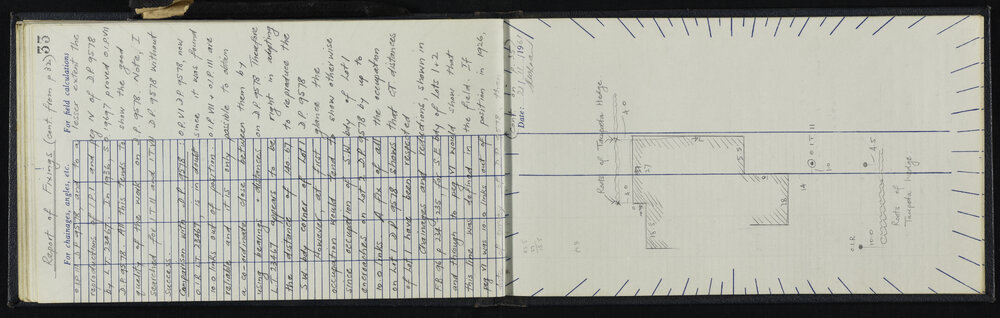 33
Report of Fixings (Cont. from p 32)
For chainages, angles, etc.
For field calculations
O.I.R. III D.P. 9578 and to a lesser extent the
reproduction of I.P. 1 and peg N of D.P. 9578
by L.T. 23467. In 1936 S. 9697 proved O.I.P. VII
D.P. 9578. All this tends to show the good
quality of the work on D.P. 9578. Note, I
searched for I.T. II and I.T. VI D.P. 9578 without
success.
Comparison with D.P. 9578 O.P. VI D.P. 9578, now
O.I.R. L.T. 23467, is in doubt since it was found
10.0 links out of position. O.I.P. VII + O.I.P. III are
reliable and it is only possible to obtain
a co-ordinate close between them by
using bearings + distances on D.P. 9578. Therefore
L.T. 23467 appears to be right in adopting
the distance of 140.67 to reproduce the
S.W. bdy corner of Lot 1 D.P. 9578
However, at first glance the
occupation would tend to show otherwise
since occupation on S.W. bdy of Lot 1
encroaches on Lot 2 D.P. 9578 by up to
10.0 links. A fix of all the occupation
on Lot D.P. 9578 shows that DP distances
of Lot have been respected
Chainages and reductions, shown in
F.B. 961 p 234-235 for S.E. bdy of Lots 1+2
and though to peg VI would show that
this line was defined in the field. If
peg VI was 10.0 links out of position in 1926,
Date:
19
Roots of Taupata Hedge
4.0
27
5.5
18
1A
0.1.T. II
10
4.5
O.I.R.
10.0
Roots of
Taupata Hedge